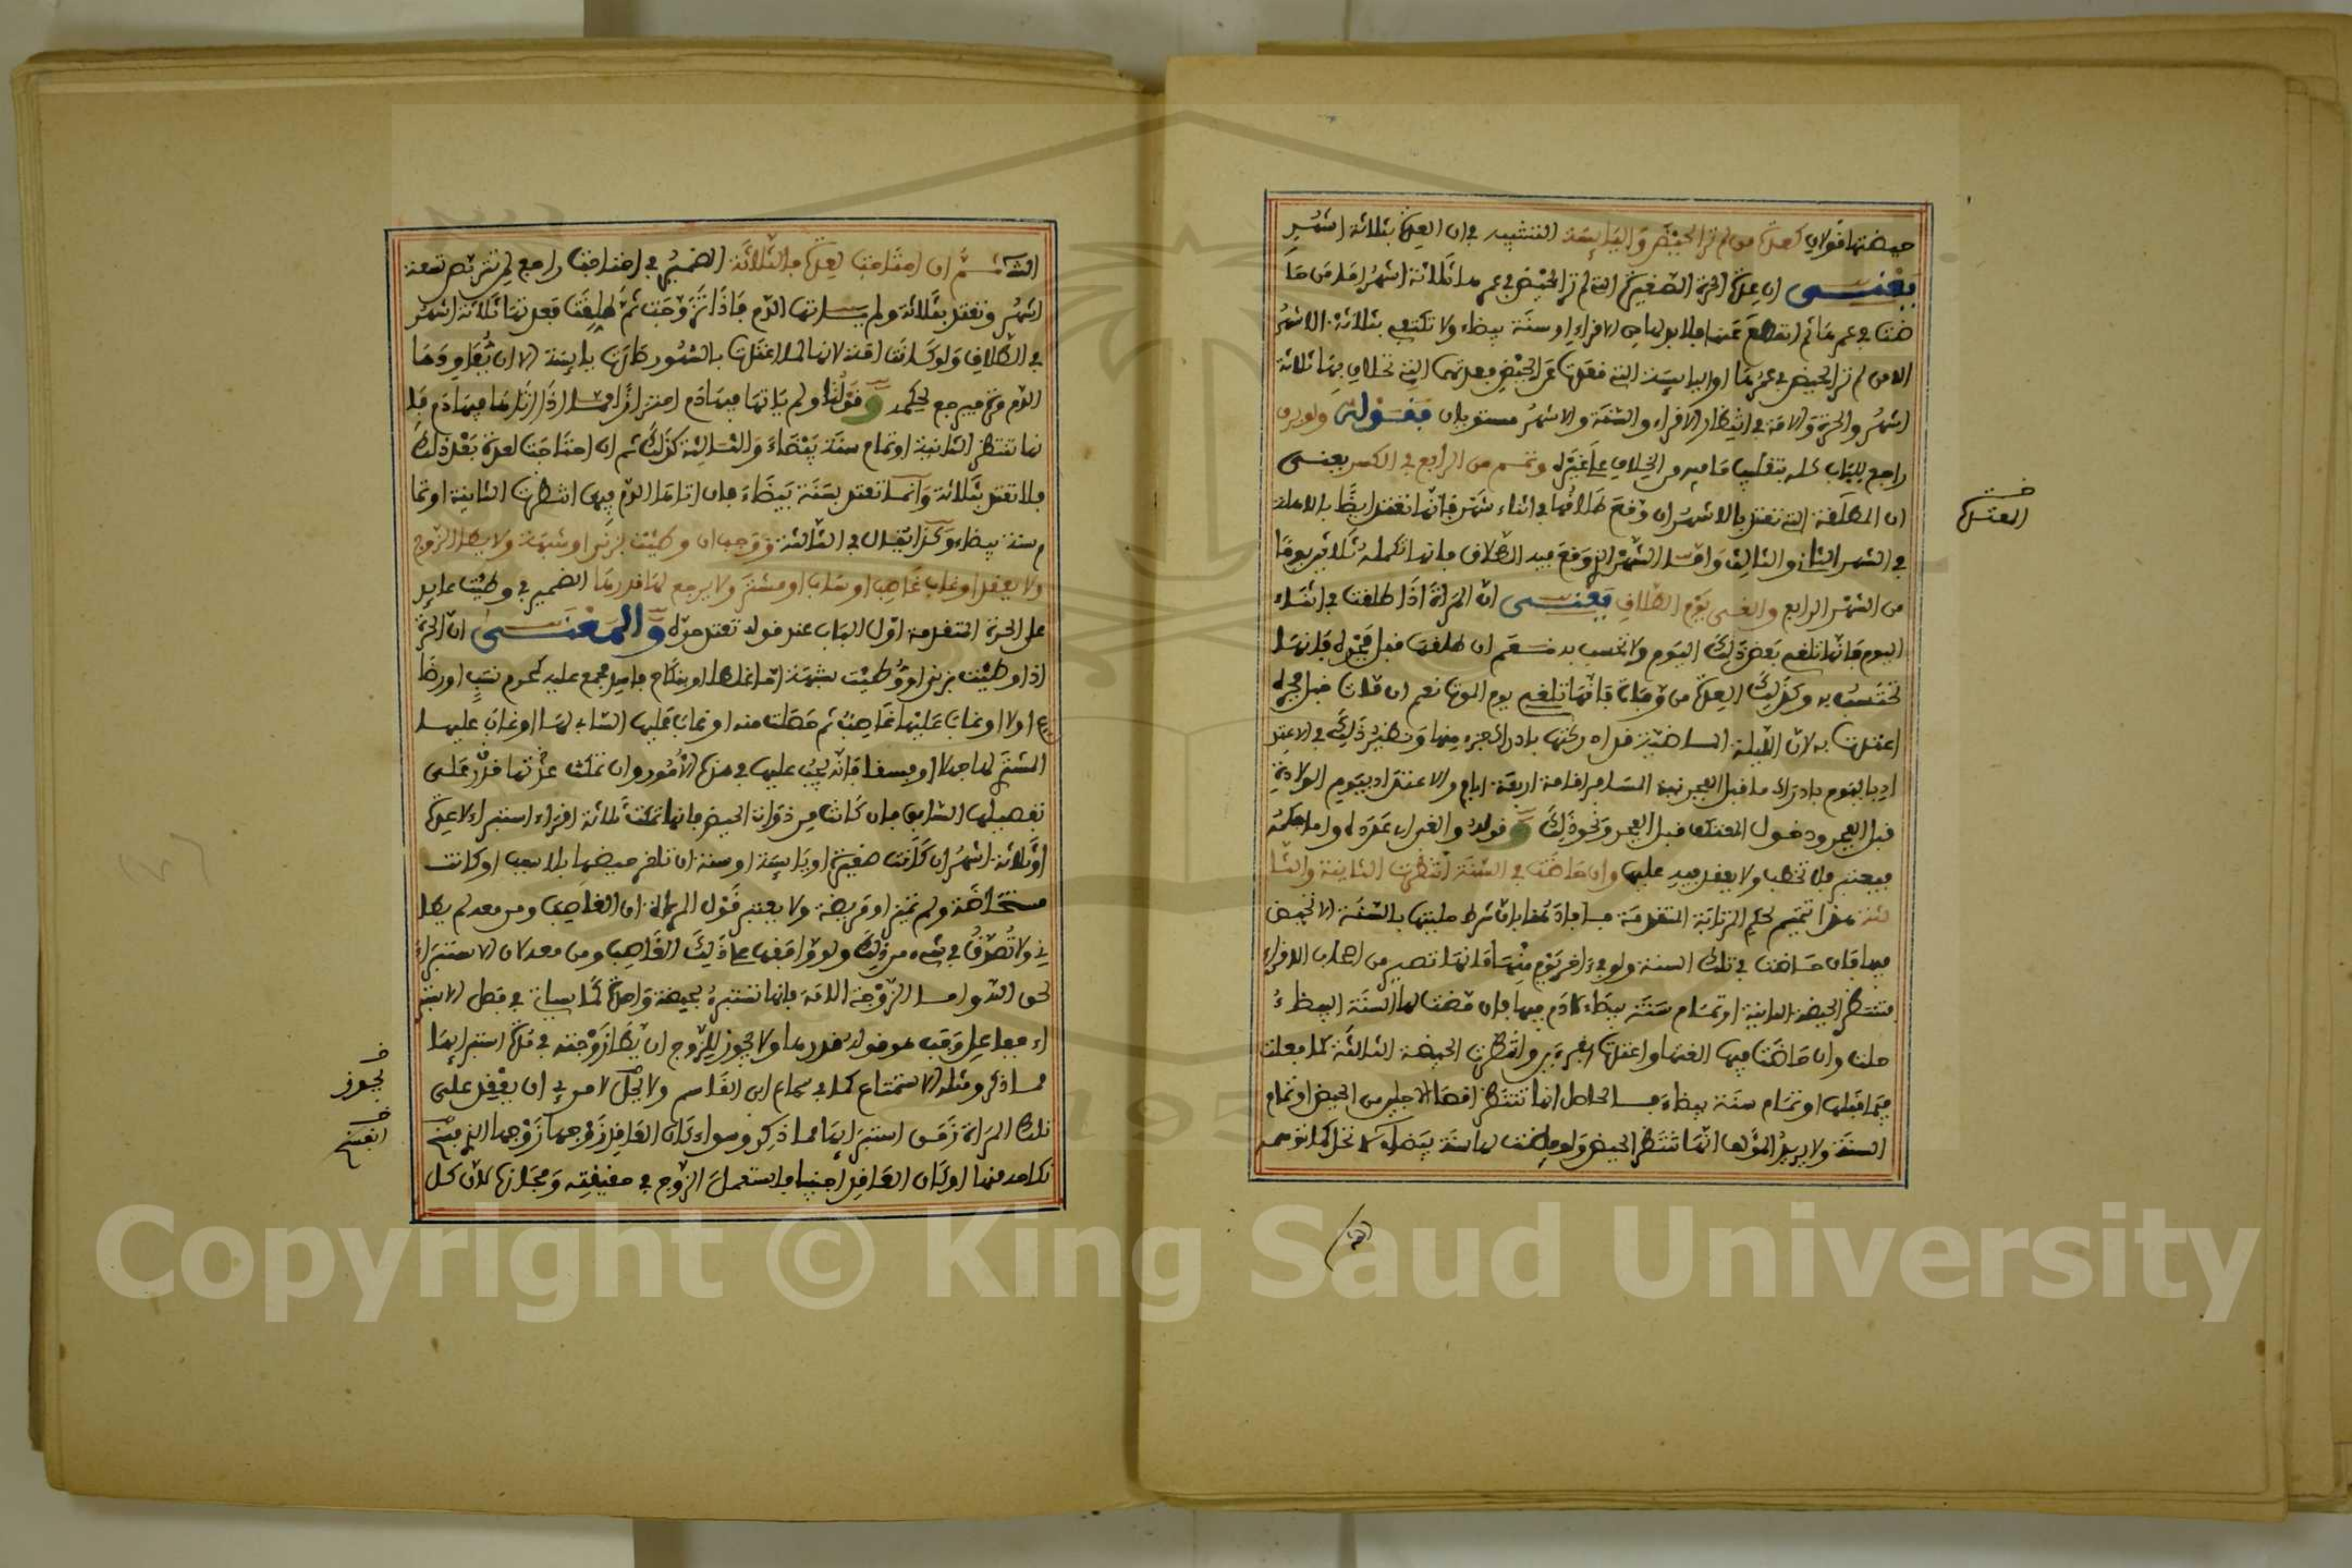 حيضتها قولان كعدة من لم تر الحيض واليائسة التشبيه في ان العدة بثلاثة اشهر
يعنى ان عدة الحرة الصغيرة التى لم تر الحيض في عمرها ثلاثة اشهر اما من حا
ضت في عمرها ثم انقطع عنها فلا بد لها من الاقراء او سنة بيضاء ولا تكتفى بثلاثة الاشهر
الا من لم تر الحيض في عمرها او اليائسة التى قعدت عن الحيض فعدتهما التى تحلان بها ثلاثة
اشهر والحرة والامة في انتظار الاقراء والسنة والاشهر مستويان فقوله ولو برق
راجع للباب كله بتغليب ما فيه من الخلاف على غيره وتمم من الرابع في الكسر يعنى
ان المطلقة التى تعتد بالاشهر ان وقع طلاقها في اثناء شهر فانها تعتد ايضا بالاهلة
في الشهر الثانى والثالث واما الشهر الذى وقع فيه الطلاق فانها تكمله ثلاثين يوما
من الشهر الرابع والغى يوم الطلاق يعنى ان المراة اذا طلقت في اثناء
اليوم فانها تلغى بعض ذلك اليوم ولا تحسب به نعم ان طلقت قبل فجره فانها
تحتسب به وكذلك العدة من وفاة فانها تلغى يوم الموت نعم ان مات قبل فجره
اعتدت به لان الليلة الماضية قد ادركتها بادراك جزء منها ونظير ذلك في الاعتد
اد باليوم بادراك ما قبل الفجر نية المسافر اقامة اربعة ايام والاعتداد بيوم الولادة
قبل الفجر ودخول المعتكف قبل الفجر ونحو ذلك وقوله والغى اى عدده واما حكمه
فيعتبر فلا تخطب ولا يعقد فيه عليها وان حاضت في السنة انتظرت الثانية والثا
لثة هذا تتميم لحكم المرتابة المتقدمة فافاد هنا بان شرط حليتها بالسنة الا تحيض
فيها فان حاضت في تلك السنة ولو في ءاخر يوم منها فانها تصير من اصحاب الاقراء
فتنتظر الحيضة الثانية او تمام سنة بيضاء لا دم فيها فان مضت لها السنة البيضاء
حلت وان حاضت فيها الغتها واعتدت بقرءين وانتظرت الحيضة الثالثة كما فعلت
فيما قبلها او تمام سنة بيضاء فالحاصل انها تنتظر اقصى الاجلين من الحيض او تمام
السنة ولا يريد المؤلف انها تنتظر الحيض ولو مضت لها سنة بيضاء لا تحل كما توهمه
خ
المعتدة
الشا ثم ان احتاجت لعدة فالثلاثة الضمير في احتاجت راجع لمن تربصت تسعة
اشهر وتعتد بثلاثة ولم ياتها الدم فاذا تزوجت ثم طلقت فعدتها ثلاثة اشهر
في الطلاق ولو كانت امة لانها لما اعتدت بالشهور صارت يائسة الا ان يعاودها
الدم مرة فيرجع لحكمه وقولنا ولم ياتها فيها دم احترازا مما اذا اتاها فيها دم فا
نها تنتظر الثانية او تمام سنة بيضاء والثالثة كذلك ثم ان احتاجت لعدة بعد ذلك
فلا تعتد بثلاثة وانما تعتد بسنة بيضاء فان اتاها الدم فيها انتظرت الثانية او تما
م سنة بيضاء وكذا يقال في الثالثة ووجب ان وطئت بزنى او شبهة ولا يطا الزوج
ولا يعقد او غاب غاصب او ساب او مشتر ولا يرجع لها قدرها الضمير في وطئت عايد
على الحرة المتقدمة اول الباب عند قوله تعتد حرة والمعنى ان الحرة
اذا وطئت بزنى او وطئت بشبهة اما غلطا او بنكاح فاسد مجمع عليه كمحرم نسب او رضا
ع اولا او غاب عليها غاصب ثم خصلت منه او غاب عليها الساب لها او غاب عليها
المشترى لها جهلا او فسقا فانه يجب عليها في هذه الامور وان تمكث عدتها قدر على
تفصيلها السابق فان كانت من ذوات الحيض فانها تمكث ثلاثة اقراء استبراء لا عدة
او ثلاثة اشهر ان كانت صغيرة او يائسة او سنة ان تاخر حيضها بلا سبب او كانت
مستحاضة ولم تميز او مريضة ولا يعتبر قول المراة ان الغاصب ومن معه لم يطا
نى ولا تصدق في شىء من ذلك ولو وافقها على ذلك الغاصب ومن معه لان الاستبراء
لحق الله واما الزوجة الامة فانها تستبرئ بحيضة واحدة كما سياتى في فصل الاستبر
اء ففاعل وجب هو قوله قدرها ولا يجوز للزوج ان يطا زوجته في مدة استبرائها
مما ذكر ومثله الاستمتاع كما في سماع ابن القاسم ولا يحل لامرئ ان يعقد على
تلك المراة زمن استبرائها مما ذكر وسواء كان العاقد زوجها زوجها الذى فسخ
نكاحه منها او كان العاقد اجنبيا فاستعمل الزوج في حقيقته ومجازه لان كل
خ
يجوز
خ
انفسخ
Copyright © King Saud University